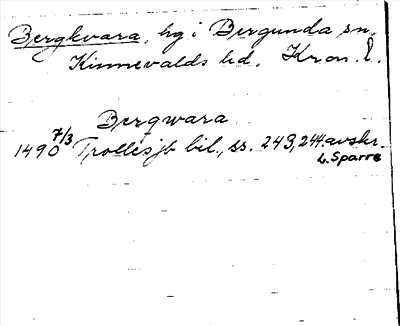 Bergkvara, hg i Bergunda sn,
Kinnevalds hd, Kron. l.
Bergwara
1490 7/3 Trollesjb bil., ss. 243, 244. avskr.
L. Sparre